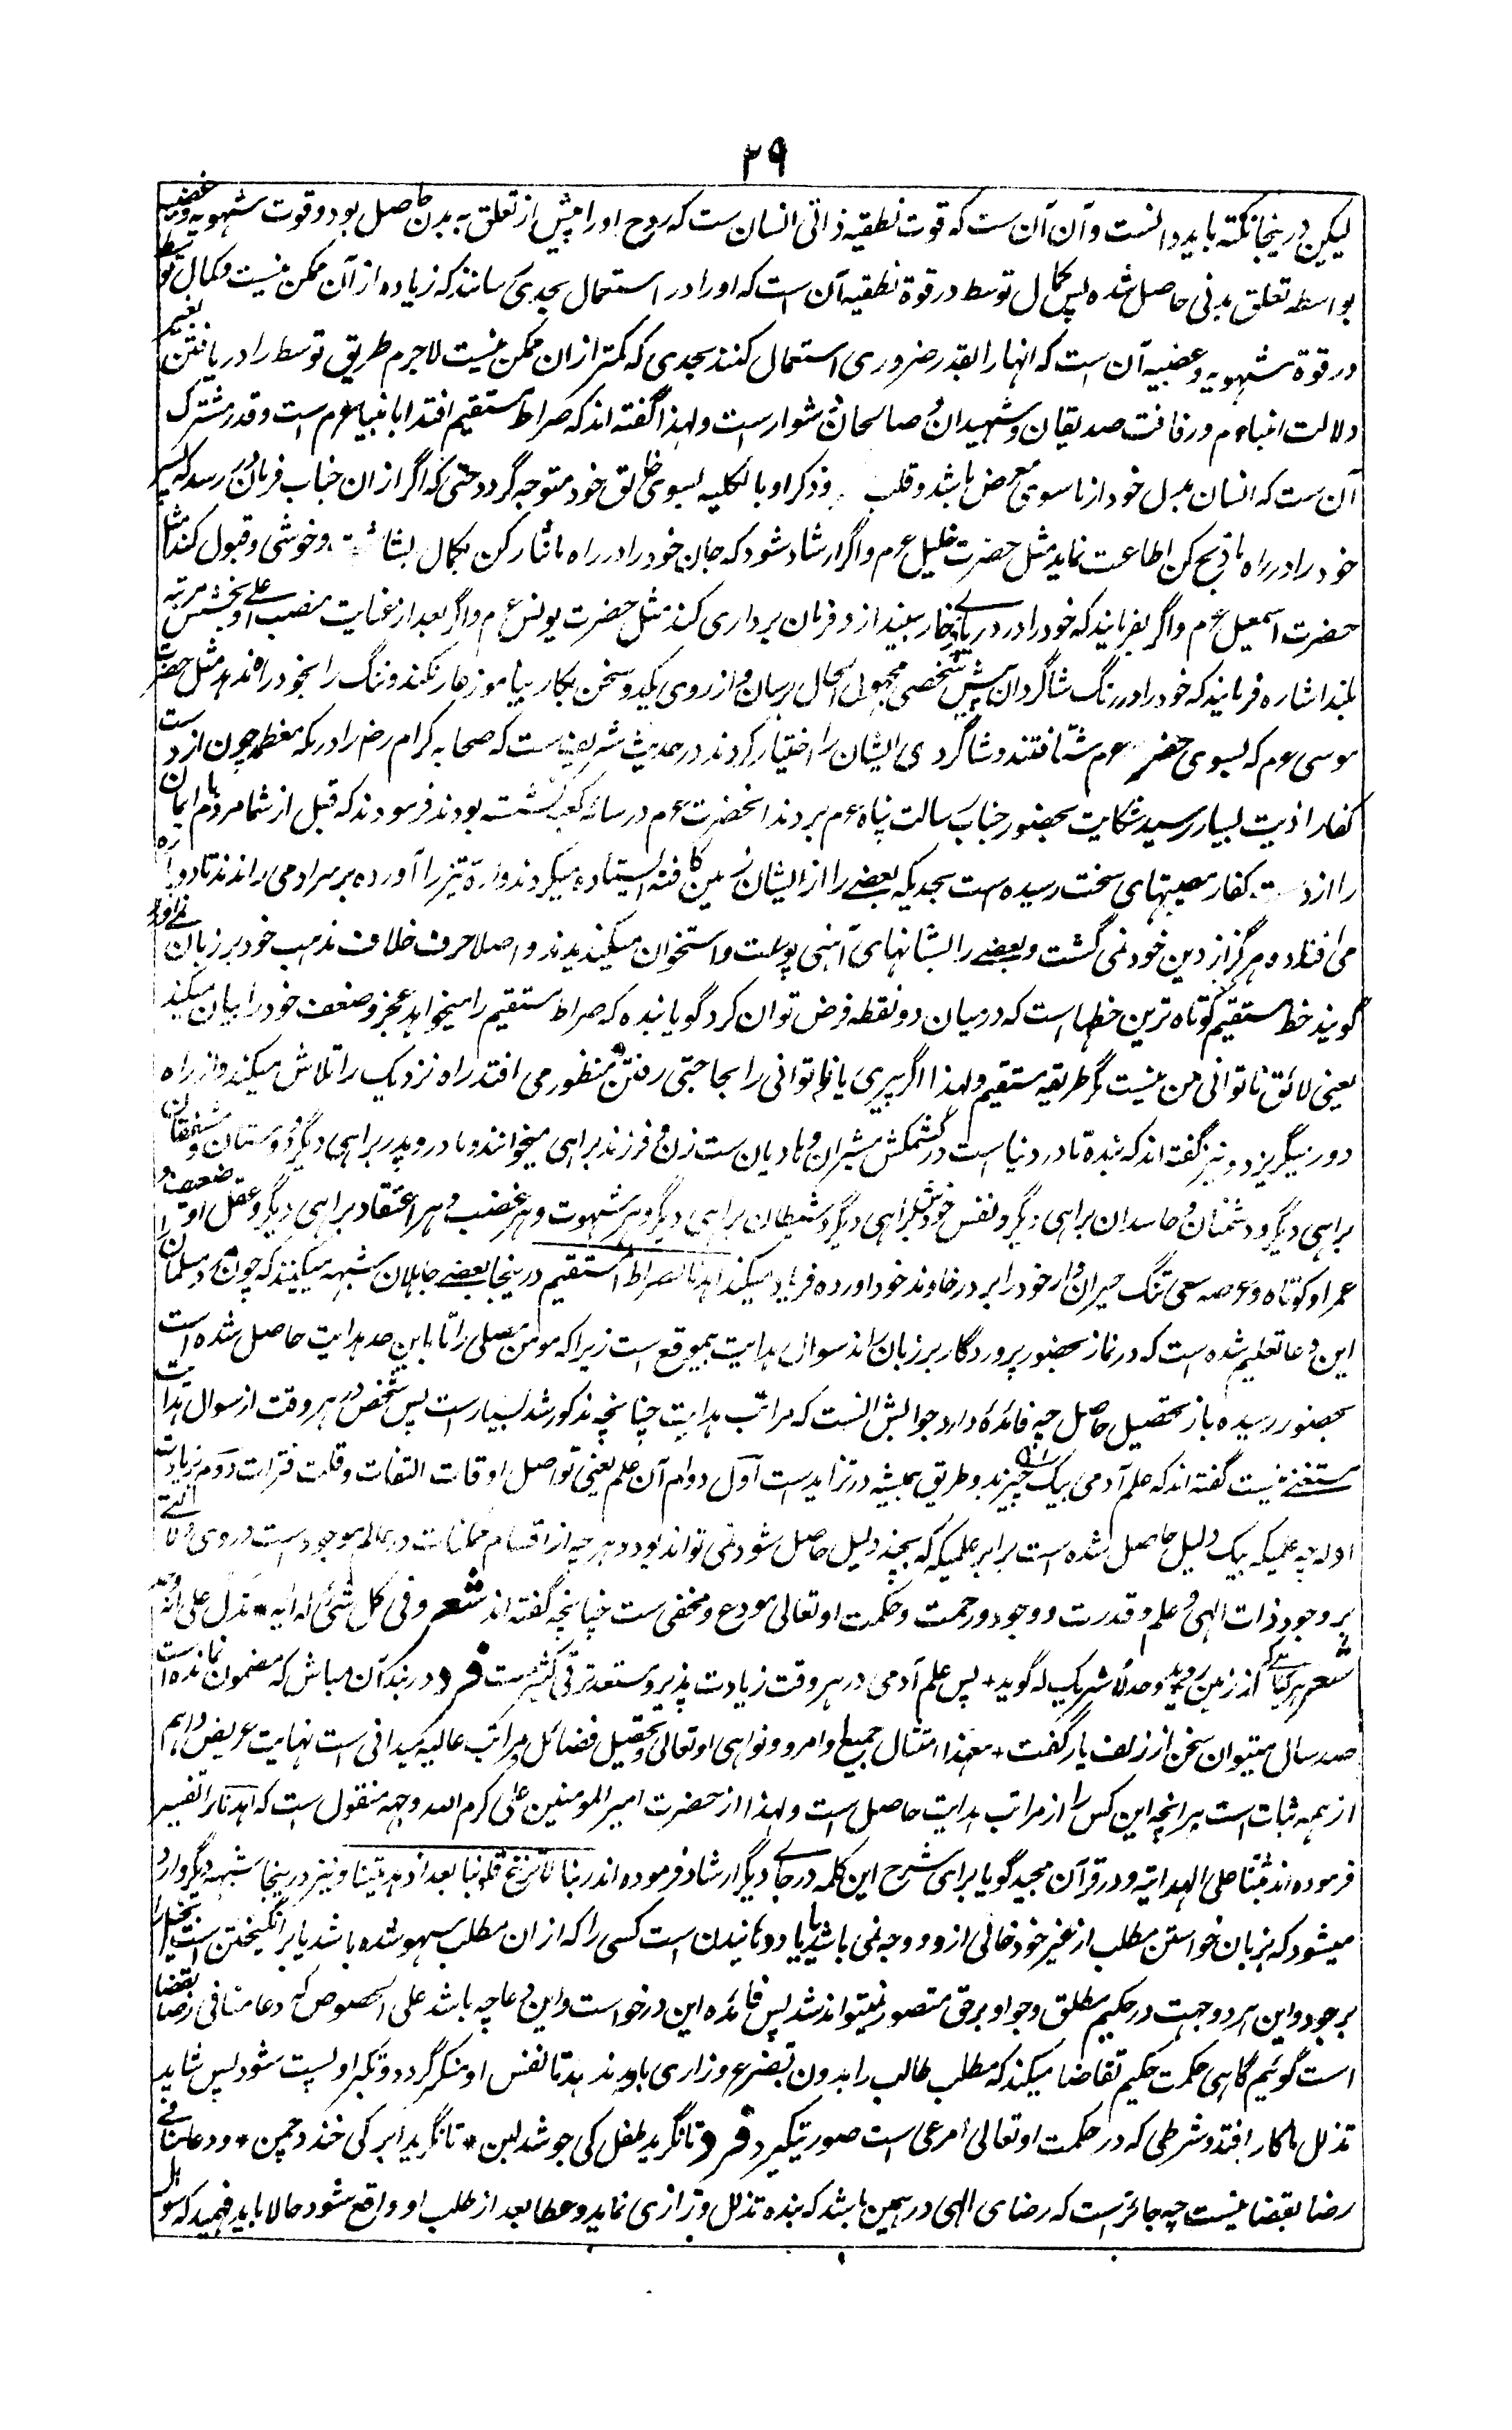 ۲۹
لیکن درینجا نکته باید دانست و آن آن ست که قوت نطقیه ذاتی انسان ست که روح او را پیش از تعلق به بدن حاصل بود و قوت شهویه و غضبیه
بواسطه تعلق بدنی حاصل شده پس کمال توسط در قوة نطقیه آن است که او را در استعمال بحدی رسانند که زیاده از آن ممکن نیست و کمال توسط
در قوة شهویه و غضبیه آن است که انها را بقدر ضروری استعمال کنند بحدی که کمتر ازان ممکن نیست لاجرم طریق توسط را دریافتن بغیر
دلالت انبیاء عم و رفاقت صدیقان و شهیدان و صالحان دشوار است و لهذا گفته اند که صراط مستقیم اقتدا بانبیا عم است و قدر مشترک
آن ست که انسان بدل خود از ماسوی معرض باشد و قلب و ذکر او بالکلیه بسوی خالق خود متوجه گردد حتی که اگر ازان جناب فرمان در رسد که پسر
خود را در راه ما ذبح کن اطاعت نماید مثل حضرت خلیل عم و اگر ارشاد شود که جان خود را در راه ما نثار کن بکمال بشاشت و خوشی قبول کند مثل
حضرت اسمعیل عم و اگر بفرمایند که خود را در دریائے زخار بیندازد فرمان برداری کند مثل حضرت یونس عم و اگر بعد از عنایت منصب اعلی و بخشش مرتبه
بلند اشاره فرمایند که خود را در رنگ شاگردان پیش شخصی مجهول الحال برسان و از روی یکدو سخن بکار بیاموز عار نکند و ننگ را بخود راه ندهد مثل حضرت
موسی عم که بسوی خضر عم شتافتند و شاگردی ایشان را اختیار کردند در حدیث شریف است که صحابه کرام رض را در مکه معظمه چون از دست
کفار اذیت بسیار رسید شکایت بحضور جناب رسالت پناه عم بردند انحضرت عم در سایه کعبه نشسته بودند فرمودند که قبل از شما مردم با ایمان
را از دست کفار مصیبتهای سخت رسیده است بحدیکه بعضے را از ایشان زمین کافته ایستاده میکردند و اره تیز را آورده بر سر ادمی راندند تا دو پاره
می افتاد و هرگز از دین خود نمی گشت و بعضے را بشانهای آهنی پوست و استخوان میکندیدند و اصلا حرف خلاف مذهب خود بر زبان نمے آورد
گویند خط مستقیم کوتاه ترین خطها است که درمیان دو نقطه فرض توان کرد گویا بنده که صراط مستقیم را میخواهد عجز و ضعف خود را بیان میکند
یعنی لائق ناتوانی من نیست مگر طریقه مستقیم و لهذا اگر پیری یا ناتوانی را بجا حتی رفتن منظور می افتد راه نزدیک را تلاش میکند و از راه
دور میگریزد و نیز گفته اند که بنده تا در دنیا است در کشمکش مشیران و هادیان ست زن و فرزند براهی میخوانند و مادر و پدر براهی دیگر و دوستان و مشفقان
براهی دیگر و دشمنان و حاسدان براهی دیگر و نفس خودش براهی دیگر و شیطان براهی دیگر و هر شهوت و هر غضب و هر اعتقاد براهی دیگر و عقل او ضعیف و
عمر او کوتاه و عرصه سعی تنگ حیران وار خود را بر در خاوند خود اورده فریاد میکند اهدنا الصراط المستقیم درینجا بعضے جاهلان شبهه میکنند که چون مسلمان را
این دعا تعلیم شده است که در نماز بحضور پروردگار بر زبان راند سوال هدایت بیموقع است زیرا که مومن مصلی را تا باین حد هدایت حاصل شده است
بحضور رسیده باز تحصیل حاصل چه فائده دارد جوابش انست که مراتب هدایت چنانچه مذکور شد بسیار است پس شخص در هر وقت از سوال هدایت
مستغنے نیست گفته اند که علم آدمی بیک چیز بدو طریق همیشه در تزاید است اول دوام آن علم یعنی تواصل اوقات التفات و قلت فترات دوم زیادت
ادله چه علمیکه بیک دلیل حاصل شده است برابر علمیکه که بچند دلیل حاصل شود نمی تواند بود و هر چه از اقسام ممکنات در عالم موجود است در وی دلالتے
بر وجود ذات الهی و علم و قدرت و وجود و رحمت و حکمت او تعالی مودع و مخفی ست چنانچه گفته اند شعر و فی کل شئ له آیه * تدل علی انه واحد
شعر هر گیاهے که از زمین روید وحده لا شریک له گوید + پس علم آدمی در هر وقت زیادت پذیر و مستعد ترقی کثیر ست فرد در بند آن مباش که مضمون نمانده است
صد سال میتوان سخن از زلف یار گفت + معهذا امتثال جمیع اوامر و نواهی او تعالی و تحصیل فضائل و مراتب عالیه میدانی است نهایت عریض و اهم
از همه ثبات است بر انچه این کس را از مراتب هدایت حاصل است و لهذا از حضرت امیر المومنین علی کرم الله وجهه منقول است که اهدنا را تفسیر
فرموده اند ثبتنا علی الهدایه و در قرآن مجید گویا برای شرح این کلمه در جاے دیگر ارشاد فرموده اند ربنا لا تزغ قلوبنا بعد اذ هدیتنا و نیز درینجا شبهه دیگر وارد
میشود که بزبان خواستن مطلب از غیر خود خالی از دو وجه نمی باشد یا یاد دهانیدن است کسی را که ازان مطلب سهو شده باشد یا برانگیختن است بخیل را
بر جود و این هر دو جهت در حکیم مطلق و جواد برحق متصور نمیتواند شد پس فائده این درخواست و این دعا چه باشد علی الخصوص که دعا منافی رضا بقضا
است گوئیم گاهی حکمت حکیم تقاضا میکند که مطلب طالب را بدون تضرع و زاری باو ندهد تا نفس او منکسر گردد و تکبر او پست شود پس شاید
تذلل ما کار افتد و شرطی که در حکمت او تعالی مرعی است صورت گیرد فرد تا نگرید طفل کی جوشد لبن * تا نگرید ابر کی خندد چمن * و دعا منافے
رضا بقضا نیست چه جائز است که رضای الهی در همین باشد که بنده تذلل و زاری نماید و عطا بعد از طلب او واقع شود حالا باید فهمید که سوال